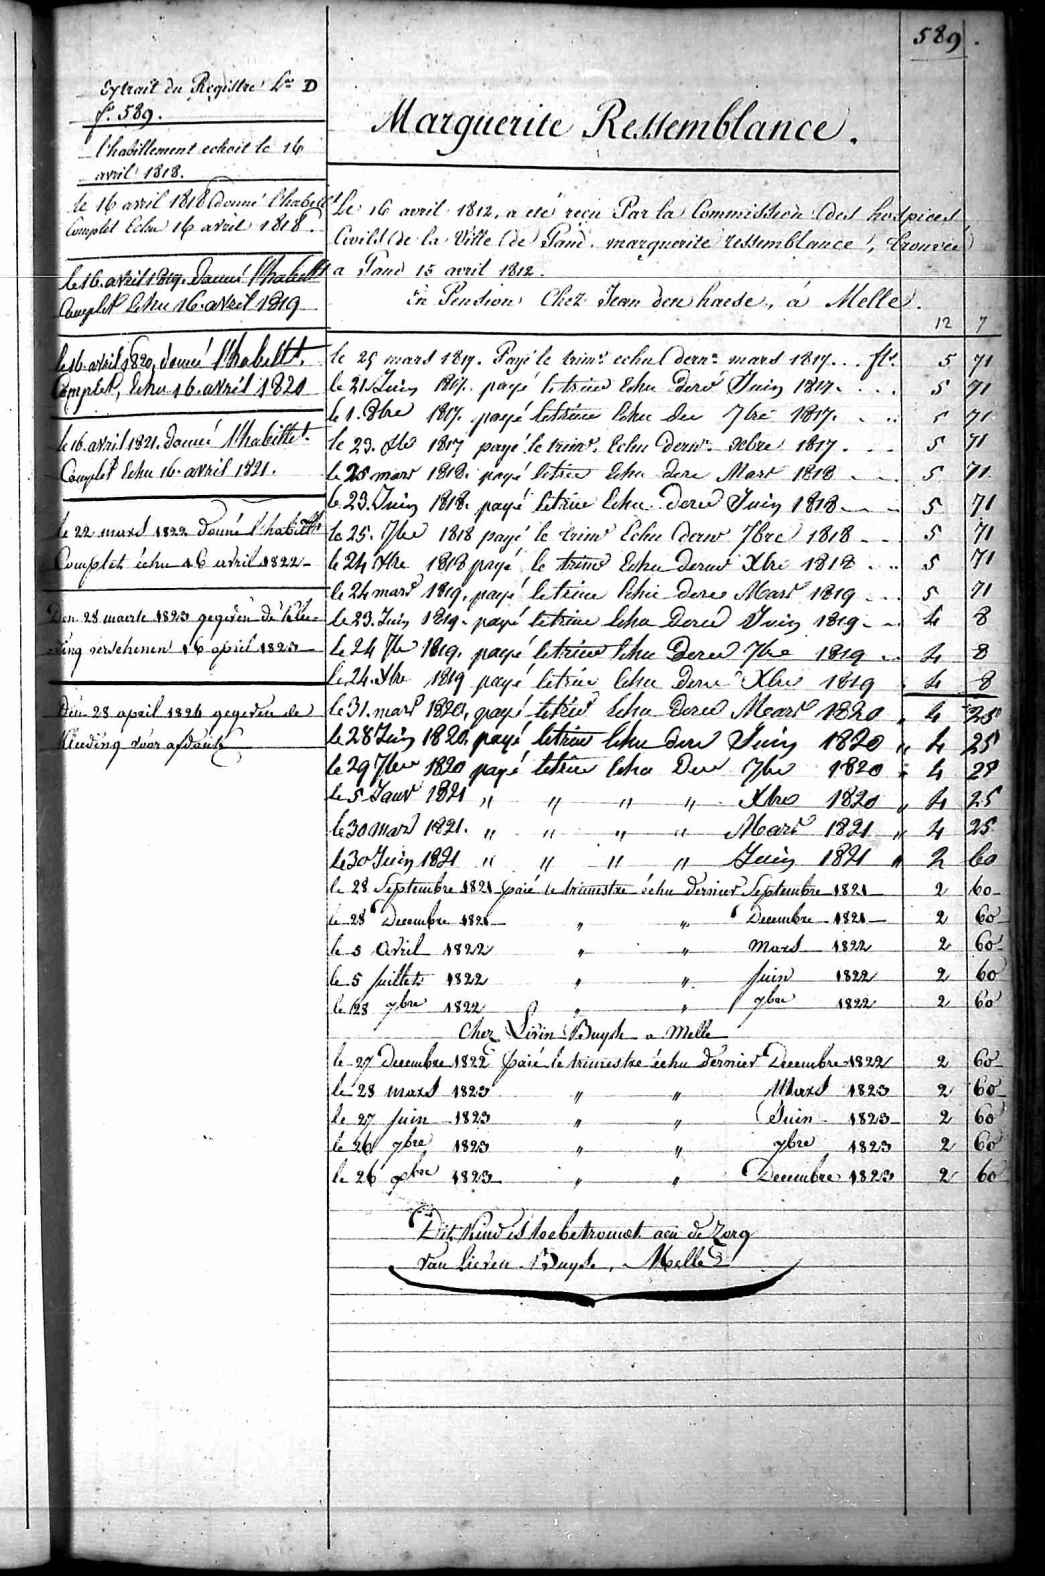 589.
Extrait du Registre Lre D
fo. 589.
l'habillement echoit le 16
avril 1818.
le 16 avril 1818 donné l'habillt
Complet Echu 16 avril 1818.
le 16 avril 1819. donné l'habillt
Complet Echu 16. avril 1819
le 16. avril 1820, donné l'habillt.
Complet, Echu 16. avril 1820
le 16. avril. 1821. donné l'habillt.
Complet Echu 16. avril 1821.
le 22 mars 1822 donné l'habillt
Complet échu 16 avril 1822
Den 28 maerte 1823 gegeven de klee-
-ding verschenen 16 april 1823
Den 28 april 1824 gegeven de
Kleeding voor
Marguerite Ressemblance.
Le 16 avril 1812, a eté reçu Par la Commission des hospices
Civils de la Ville de Gand. marguerite ressemblance, trouvée
a Gand 15 avril 1812.
En Pension Chez Jean den haese, á Melle.
12 7
le 25 mars 1817. Payé le trimr. echu dernr. mars 1817... fls. 5 71
le 21. Juin 1817. payé le trim Echu derer Juin 1817. . . . 5 71
le 1. 8bre 1817. payé le trim Echu der 7bre 1817. . . 5 71
le 23. Xbr 1817 payé le trimr. Echu dernr. Xbre 1817. . . . 5 71
le 25 mars 1818. payé le trim Echu dere Mars 1818 . . . 5 71
le 23. Juin 1818. payé le trim Echu derer Juin 1818 . . . 5 71
le 25. 7bre 1818 payé le trimr Echu dernr 7bre 1818 . . . 5 71
le 24 Xbre 1818 payé le trimr Echu dernr Xbre 1818 . . . 5 71
le 24 mars 1819, payé le trim Echu derer Mars 1819 . . . 5 71
le 23. Juin 1819. payé le trim Echu derer Juin 1819 . . 4 8
le 24 7br 1819. payé le trim Echu derer 7bre 1819 . . 4 8
le 24. Xbre 1819 payé le trim Echu derer Xbre 1819 . 4 8
le 31. mars 1820, payé le trim Echu derer Mars 1820 " 4 25
le 28 Juin 1820, payé le trim Echu derer Juin 1820 " 4 25
le 29 7bre 1820 payé le trim Echu Der 7br 1820 " 4 25
le 5 Janv 1821 " " " " Xbre 1820 " 4 25
le 30 mars 1821. " " " " Mars 1821 " 4 25
le 30 Juin 1821 " " " " Juin 1821 " 2 60
le 28 Septembre 1821 paié le trimestre échu dernier Septembre 1821 2 60
le 28 Decembre 1821 " " Decembre 1821 2 60
le 5 Avril 1822 " " mars 1822 2 60
le 5 juillet 1822 " " juin 1822 2 60
le 28 7bre 1822 " " 7bre 1822 2 60
Chez Livin Buyse a Melle
le 27 Decembre 1822 paié le trimestre échu dernier Decembre 1822 2 60
le 28 mars 1823 " " Mars 1823 2 60
le 27 juin 1823 " " Juin 1823 2 60
le 26 7bre 1823 " " 7bre 1823 2 60
le 26 Xbre 1823 " " Decembre 1823 2 60
Dit Kind is toebetrouwt aen de Zorg
van Lieven Buyse, Melle